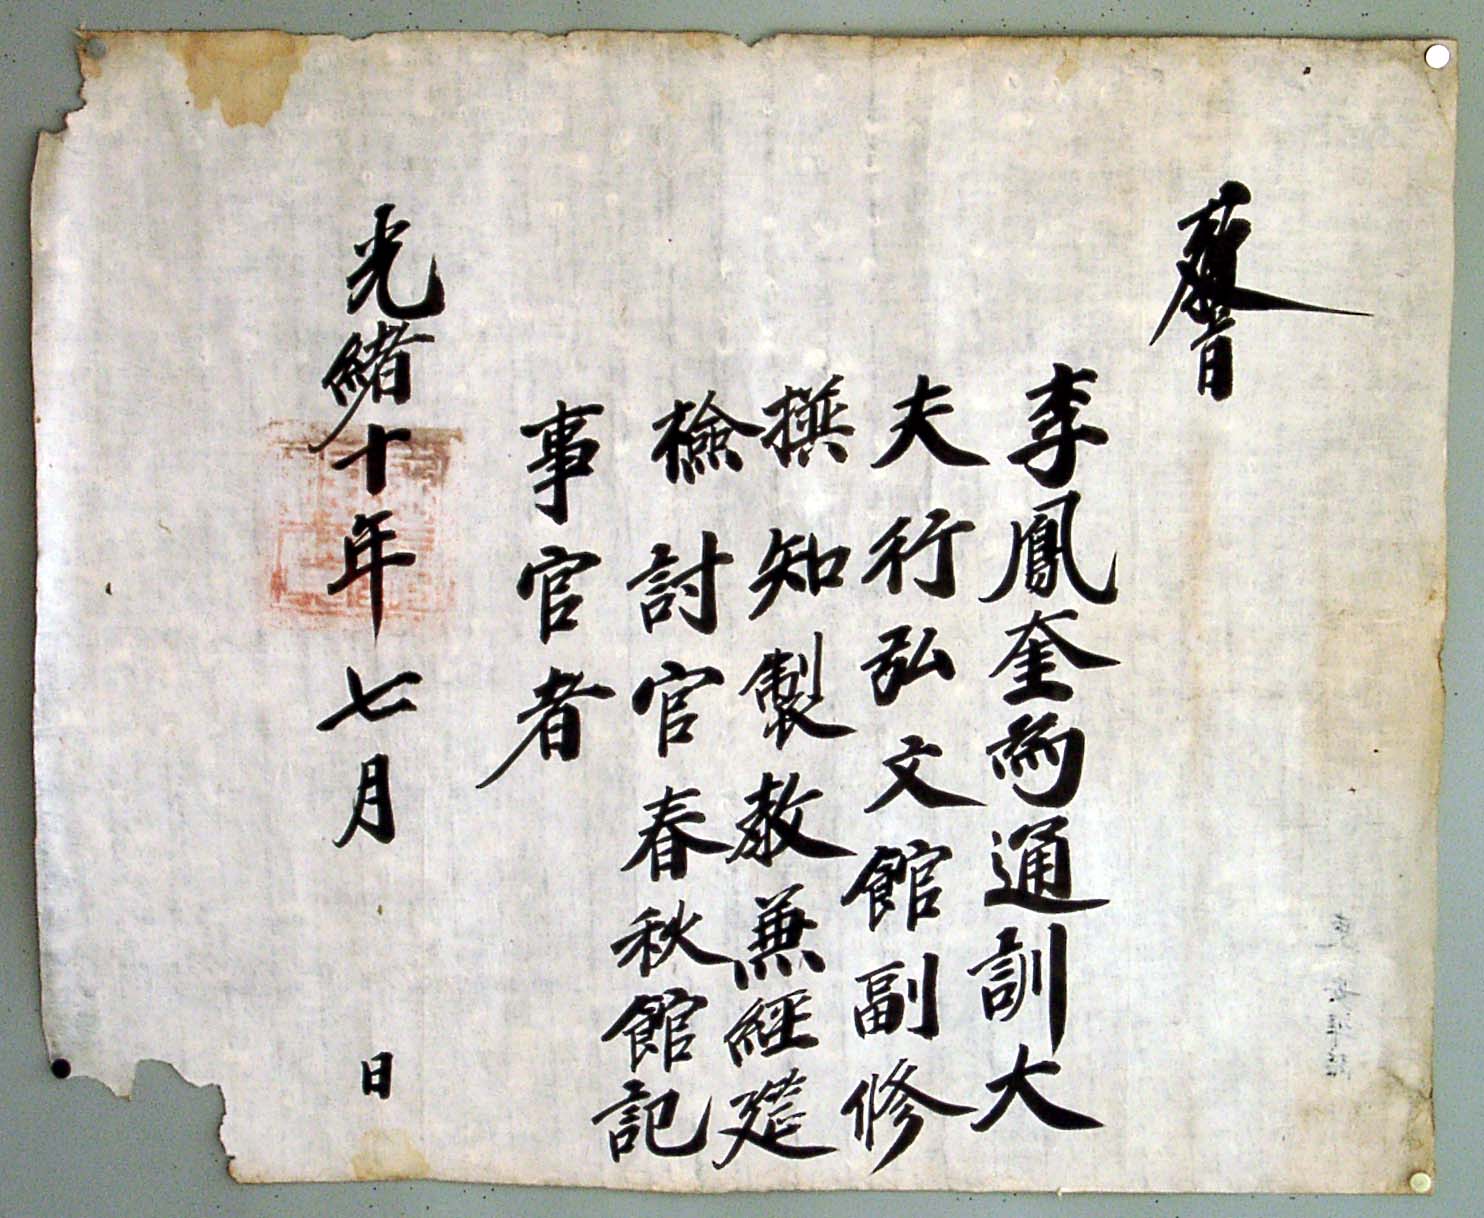 敎旨
李鳳奎爲通訓大
夫行弘文館副修
撰知製敎兼經筵
檢討官春秋館記
事官者
光緖十年七月 日